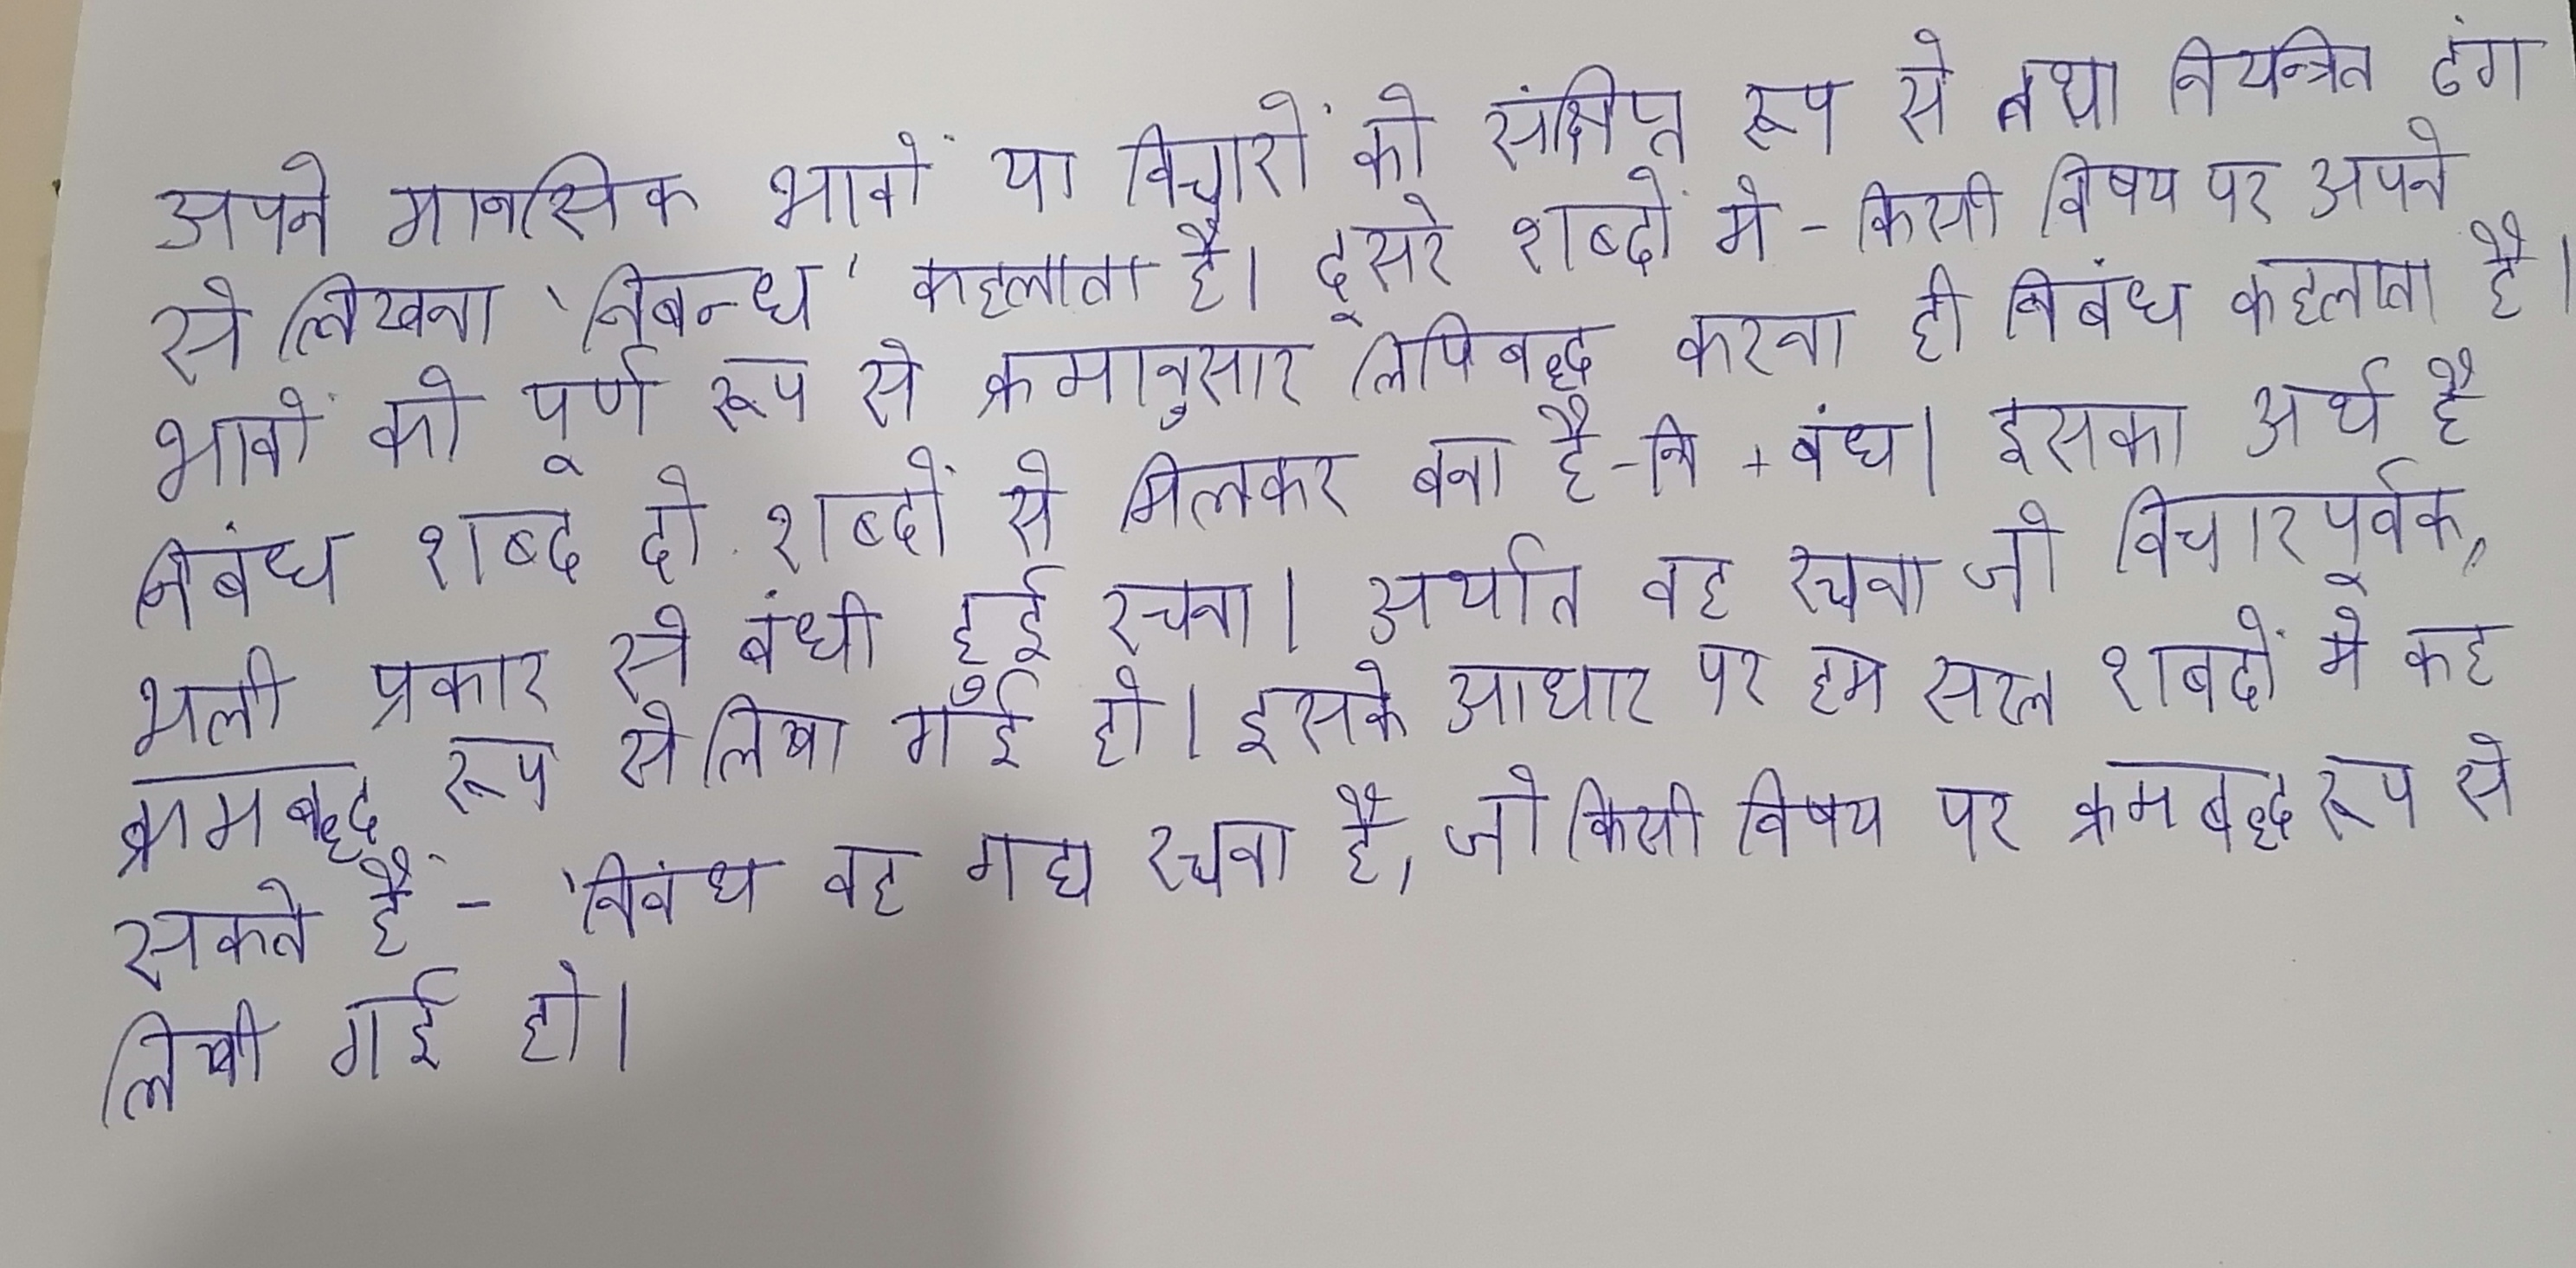 अपने मानसिक भावों या विचारों को संक्षिप्त रूप से तथा नियन्त्रित ढंग
से लिखना 'निबन्ध' कहलाता है। दूसरे शब्दों में - किसी विषय पर अपने
भावों को पूर्ण रूप से क्रमानुसार लिपिबद्ध करना ही निबंध कहलाता है।
निबंध शब्द दो शब्दों से मिलकर बना है - नि + बंध। इसका अर्थ है
भली प्रकार से बंधी हुई रचना। अर्थात वह रचना जो विचारपूर्वक,
क्रमबद्ध रूप से लिखा गई हो। इसके आधार पर हम सरल शबदों मे कह
सकते हैं - 'निबंध वह गद्य रचना है, जो किसी विषय पर क्रमबद्ध रूप से
लिखी गई हो।